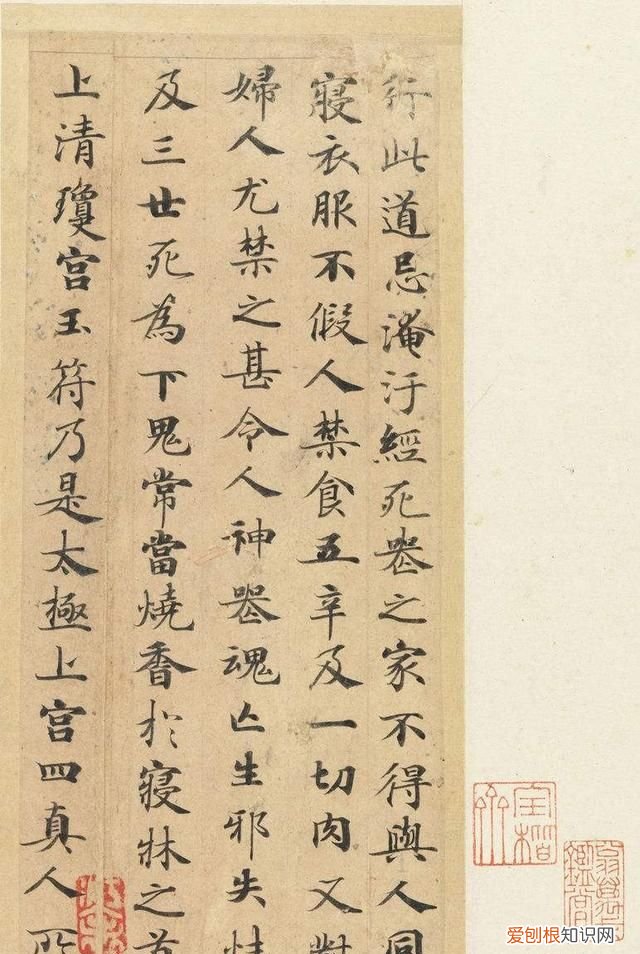 行此道忌淹汙經死喪之家不得與人同
寢衣服不假人禁食五辛及一切肉又對
婦人尤禁之甚令人神喪魂亡生邪失性
及三世死為下鬼常當燒香於寢牀之首
上清瓊宮玉符乃是太極上宮四真人所
爱刨根知识网
www.aibaogen.com